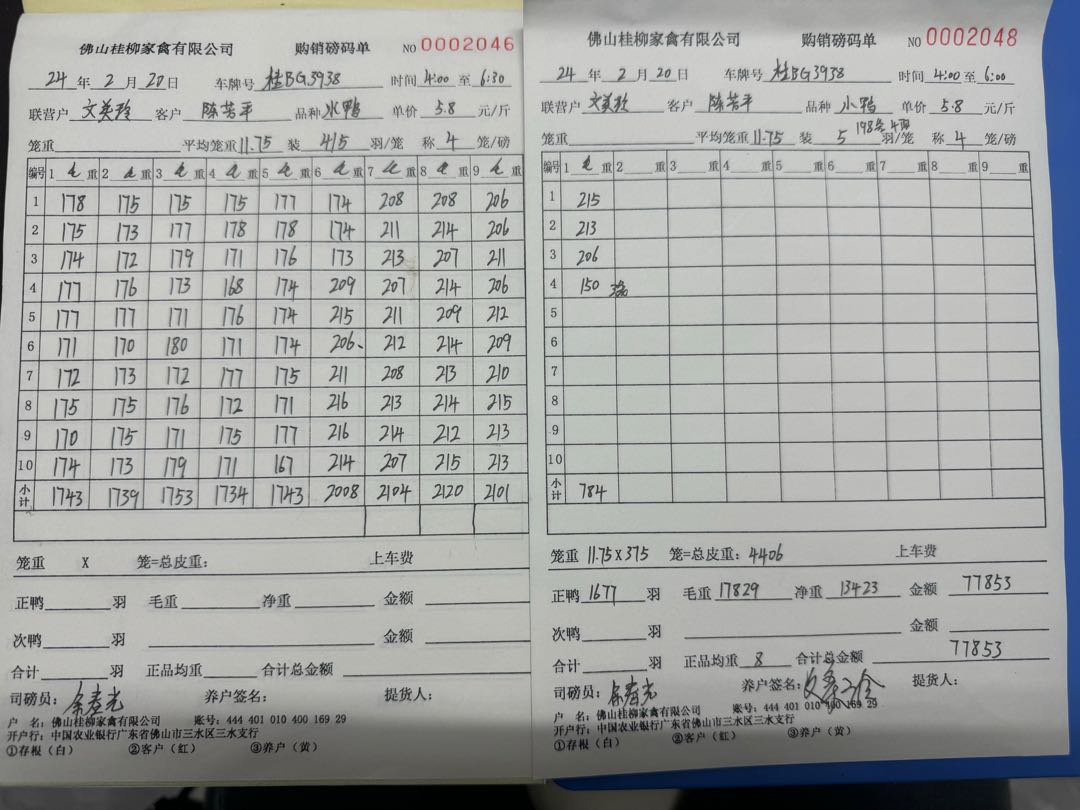 佛山桂柳家禽有限公司 购销磅码单 NO 0002046
24 年 2 月 20 日 车牌号 桂BG3938 时间 4:00 至 6:30
联营户 文美玲 客户 陈芳平 品种 水鸭 单价 5.8 元/斤
笼重 平均笼重 11.75 装 4/5 羽/笼 称 4 笼/磅
编号 1 重 2 重 3 重 4 重 5 重 6 重 7 重 8 重 9 重
1 178 175 175 175 177 174 208 208 206
2 175 173 177 178 178 174 211 214 206
3 174 172 179 171 176 173 213 207 211
4 177 176 173 168 174 209 207 214 206
5 177 177 171 176 174 215 211 209 212
6 171 170 180 171 174 206 212 214 209
7 172 173 172 177 175 211 208 213 210
8 175 175 176 172 171 216 213 214 215
9 170 175 171 175 177 216 214 212 213
10 174 173 179 171 167 214 207 215 213
小计 1743 1739 1753 1734 1743 2008 2104 2120 2101
笼重 X 笼=总皮重: 上车费
正鸭 羽 毛重 净重 金额
次鸭 羽 金额
合计 羽 正品均重 合计总金额
司磅员: 余寿光 养户签名: 提货人:
户 名: 佛山桂柳家禽有限公司 账号: 444 401 010 400 169 29
开户行: 中国农业银行广东省佛山市三水区三水支行
①存根(白) ②客户(红) ③养户(黄)
佛山桂柳家禽有限公司 购销磅码单 NO 0002048
24 年 2 月 20 日 车牌号 桂BG3938 时间 4:00 至 6:00
联营户 文美玲 客户 陈芳平 品种 小鸭 单价 5.8 元/斤
笼重 平均笼重 11.75 装 5 羽/笼 称 4 笼/磅
编号 1 重 2 重 3 重 4 重 5 重 6 重 7 重 8 重 9 重
1 215
2 213
3 206
4 150
5
6
7
8
9
10
小计 784
笼重 11.75 X 375 笼=总皮重: 4406 上车费
正鸭 1677 羽 毛重 17829 净重 13423 金额 77853
次鸭 羽 金额
合计 羽 正品均重 8 合计总金额 77853
司磅员: 余寿光 养户签名: 提货人:
户 名: 佛山桂柳家禽有限公司 账号: 444 401 010 400 169 29
开户行: 中国农业银行广东省佛山市三水区三水支行
①存根(白) ②客户(红) ③养户(黄)